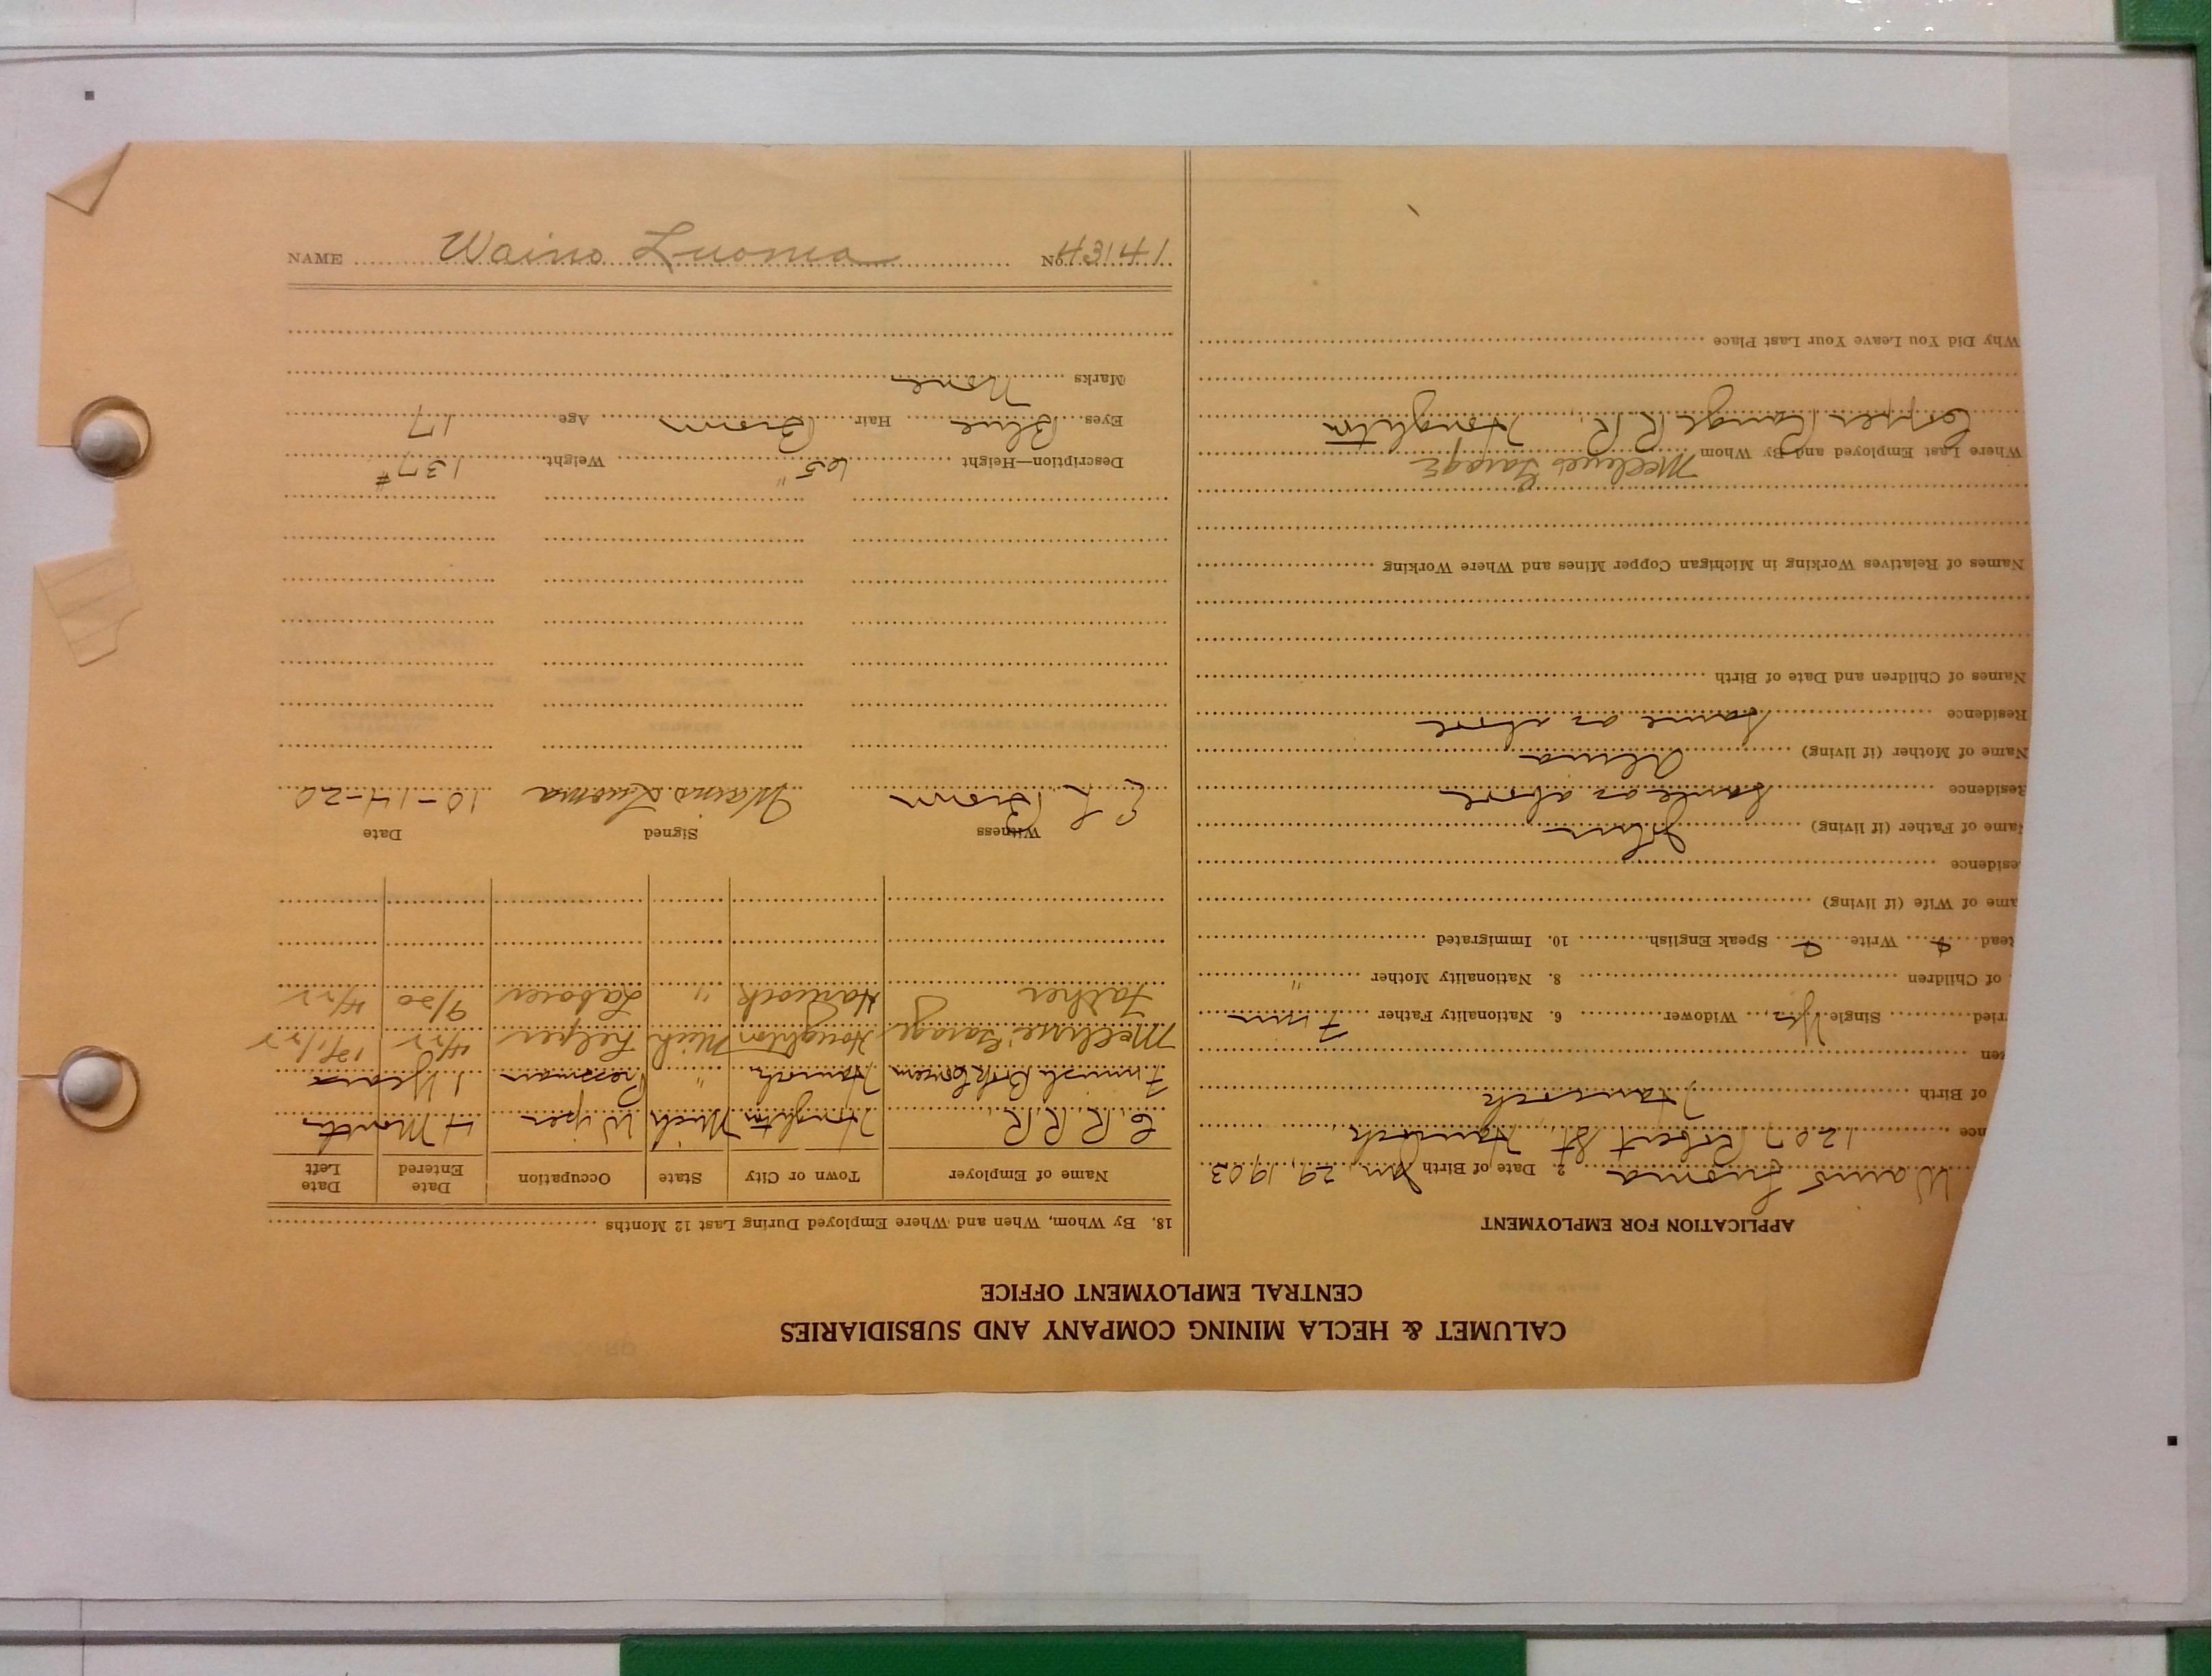 CALUMET & HECLA MINING COMPANY AND SUBSIDIARIES
CENTRAL EMPLOYMENT OFFICE
APPLICATION FOR EMPLOYMENT
Waino Luoma 2. Date of Birth Jan, 29, 1903
nce 1207 Robert St., Hancock
of Birth Hancock
zen
ried Single Yes Widower 6. Nationality Father Finn
of Children 8. Nationality Mother "
ead Write Speak English 10. Immigrated
ame of Wife (if living)
esidence
Name of Father (if living) John
Residence Same as above
Name of Mother (if living) Alma
Residence Same as above
Names of Children and Date of Birth
Names of Relatives Working in Michigan Copper Mines and Where Working
Where Last Employed and By Whom Garage
Copper Range R.R., Houghton
Why Did You Leave Your Last Place
18. By Whom, When and Where Employed During Last 12 Months
Name of Employer Town or City State Occupation Date Entered Date Left
C. R. R. R. Houghton Mich Wiper 4 Months
Finnish Book Hancock " Pressman 1 Year
Garage Houghton Mich Helper 4/22
Father Hancock " Laborer 9/20 4/22
Witness Signed Date
E L Brown Waino Luoma 10-14-20
Description—Height 65" Weight 137#
Eyes Blue Hair Brown Age 17
Marks None
NAME Waino Luoma No. 43141